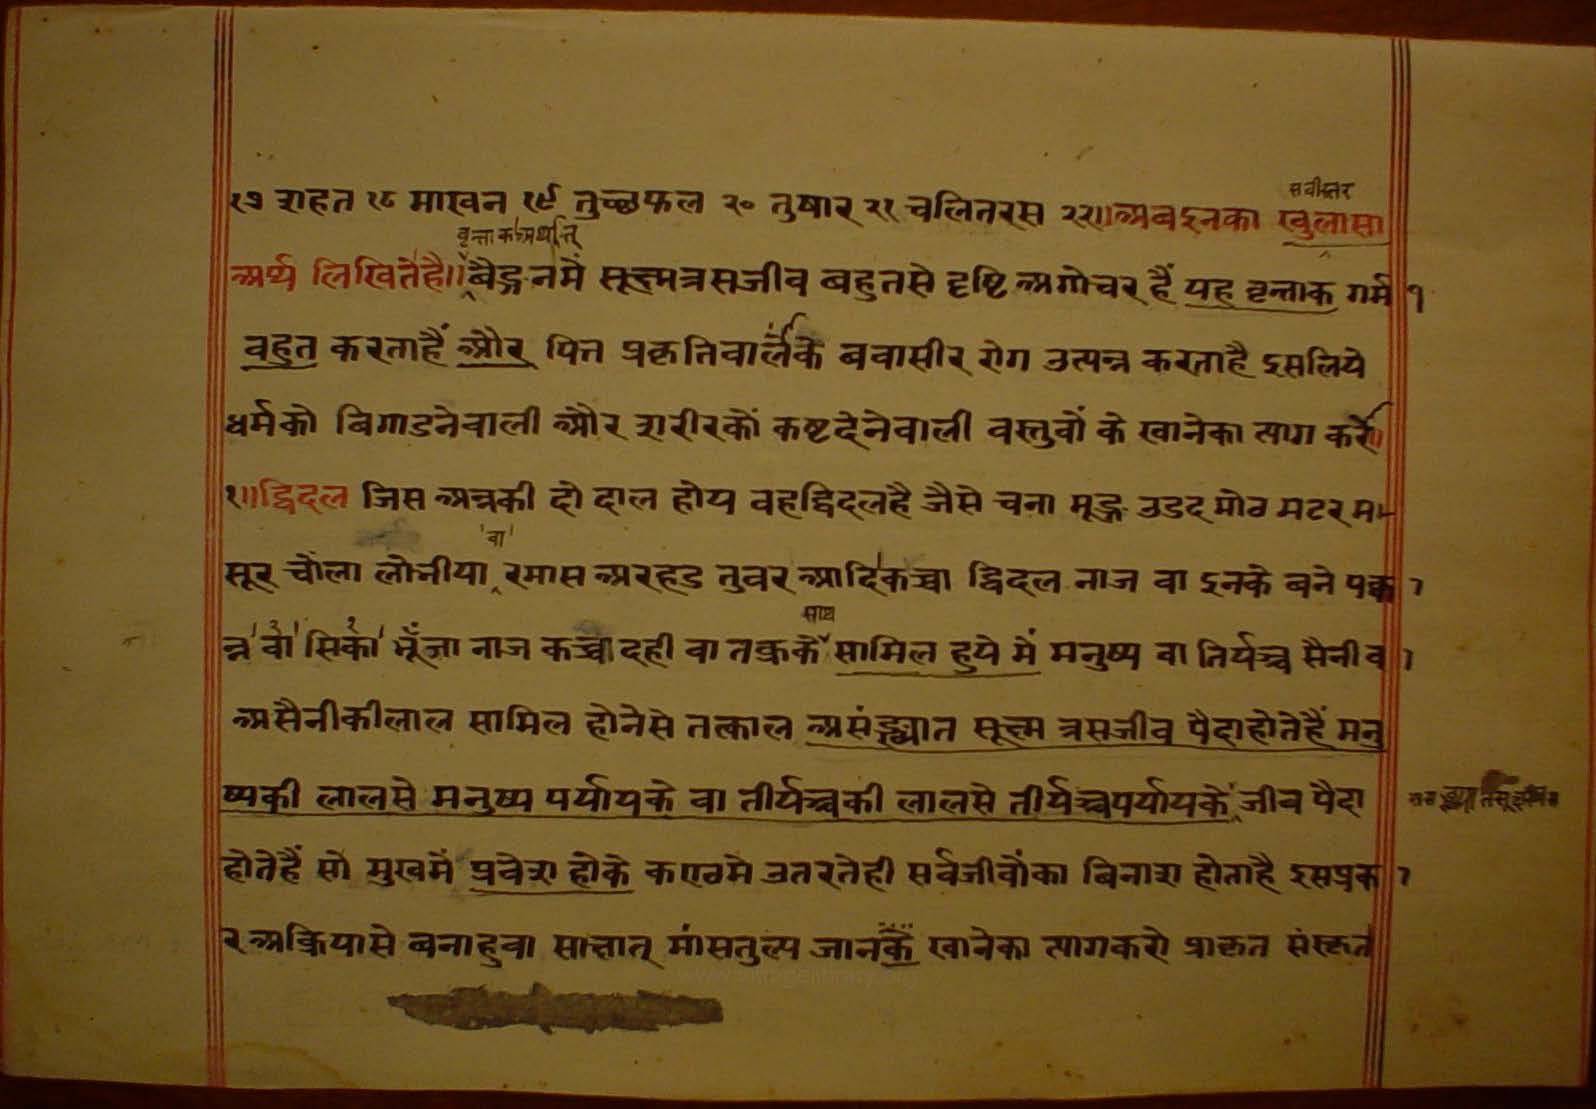 सवीस्तर
१७ शहत १८ माखन १९ तुच्छफल २० तुषार २१ चलितरस २२॥ अब इनका खुलासा
वृन्ताक अर्थात्
अर्थ लिखितेहै॥ बैङ्गनमें सूक्ष्मत्रसजीव बहुतसे दृष्टि अगोचर हैं यह वृन्ताक गर्म १
बहुत करताहैं और पित्त प्रकृतिवालेंके बवासीर रोग उत्पन्न करताहै इसलिये
धर्मको बिगाडनेवाली और शरीरकों कष्टदेनेवाली वस्तुवों के खानेका त्याग करें॥
१॥ द्विदल जिस अन्नकी दो दाल होय वहद्विदलहै जैसे चना मूङ्ग उडद मोठ मटर म-
'वा'
सूर चोंला लोभीया रमास अरहड तुवर आदिकच्चा द्विदल नाज वा इनके बने पक्क १
साथ
न्न वा सिका भूँजा नाज कच्चादही वा तक्रकें सामिल हुये में मनुष्य वा तिर्यञ्च सैनी व १
असैनीकीलाल सामिल होनेसे तत्काल असंङ्ख्यात सूक्ष्म त्रसजीव पैदाहोतेहैं मनु
ष्यकी लालसे मनुष्य पर्यायके वा तीर्यञ्चकी लालसे तीर्यञ्चपर्यायके जीव पैदा
होतेहैं सो मुखमें प्रवेश होके कण्ठमे उतरतेही सर्वजीवोंका बिनाश होताहै इसप्रक १
र अक्रियासे बनाहुवा साक्षात् मांसतुल्य जानकै खानेका त्यागकरो प्राकृत संस्कृत